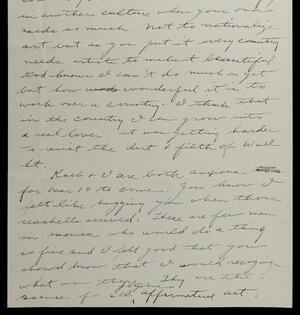 in another culture when your own
needs so much. Not to nationalize
art but as you put it every country
needs artists to make it beautiful.
God knows I can't do much as yet
but how wonderful it is to
work over a country. I think that
in the country I can grow into
a real lover. It was getting harder
to resist the dirt & filth of Wall
St.
& I are both
for Mar 10 to come. You know I
felt like hugging you when those
seashells arrived. There are few men
in America who would do a thing
so fine and I felt good that you
should know that I would recognize
what was They are the
essence of all affirmative art.